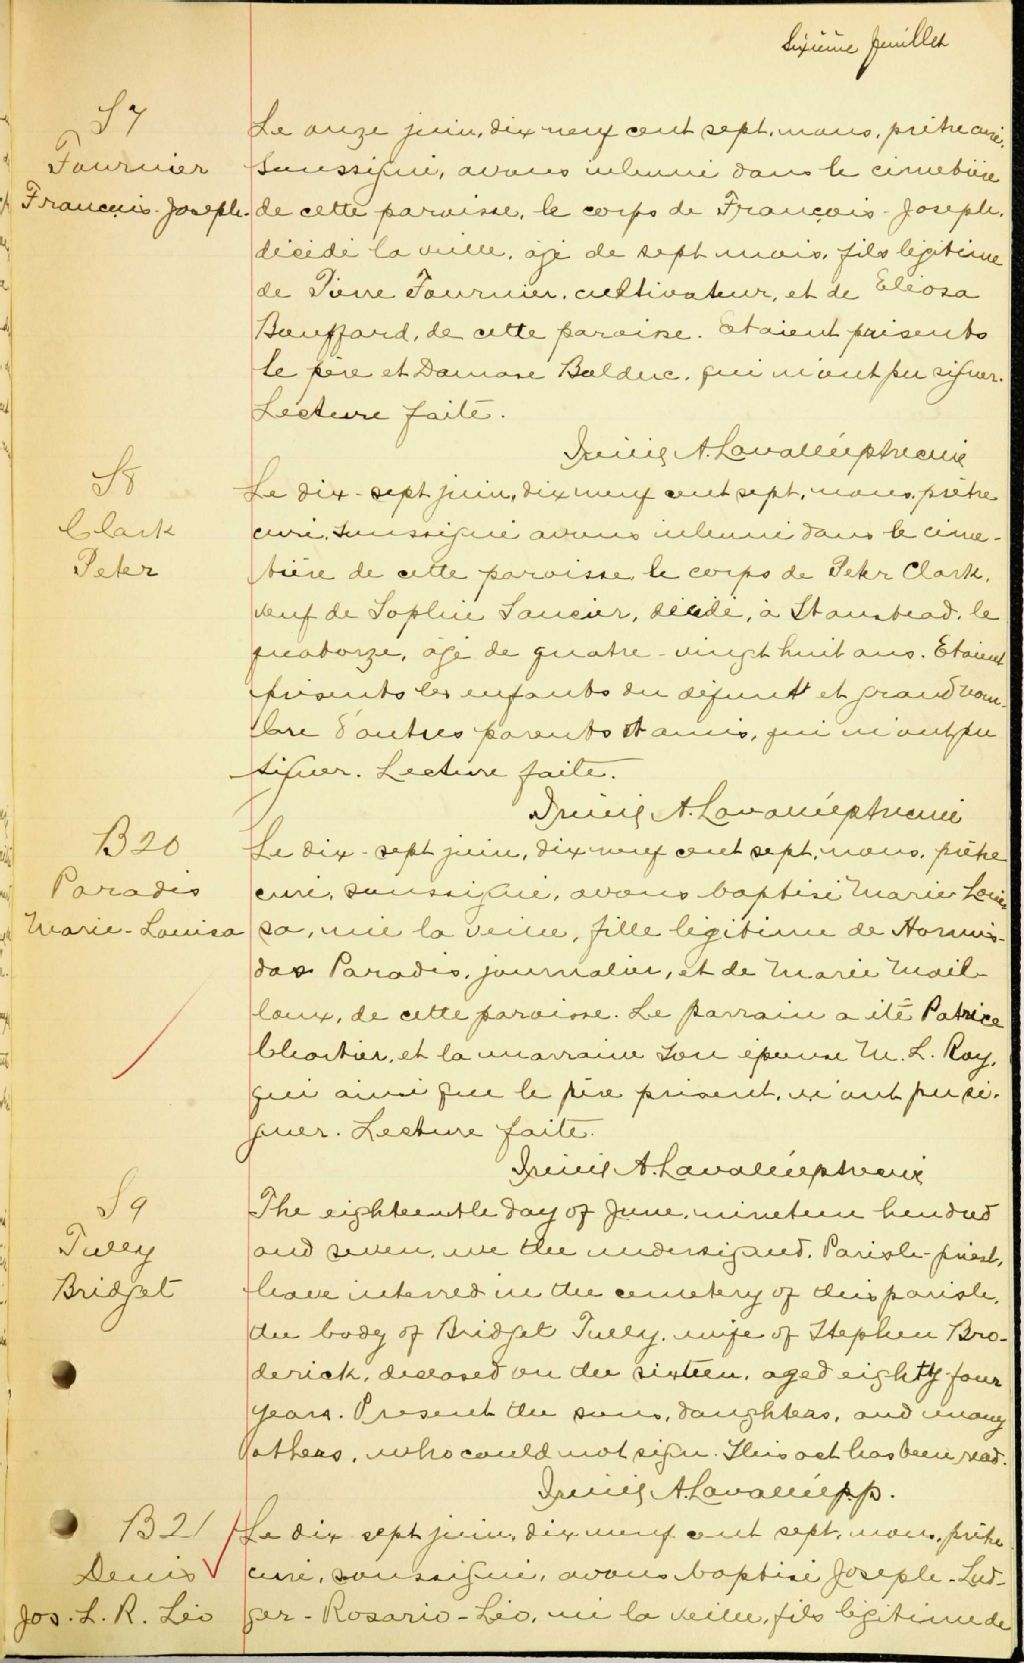 Sixième feuillet
S7
Fournier
François-Joseph.
Le onze juin, dix neuf cent sept, nous, prêtre curé,
soussigné, avons inhumé dans le cimetière
de cette paroisse, le corps de François-Joseph,
décédé la veille, âgé de sept mois, fils légitime
de Pierre Fournier, cultivateur, et de Eléosa
Bouffard, de cette paroisse. Etaient présents
le père et Damase Bolduc, qui n'ont pu signer.
Lecture faite.
Irénée A. Lavallée ptre curé
S8
Clark
Peter
Le dix-sept juin, dix neuf cent sept, nous, prêtre
curé, soussigné avons inhumé dans le cime-
tière de cette paroisse le corps de Peter Clark,
veuf de Sophie Saucier, décédé, à Stanstead, le
quatorze, âgé de quatre-vingt huit ans. Etaient
présents les enfants du défunt et grand nom-
bre d'autres parents et amis, qui n'ont pu
signer. Lecture faite.
Irénée A. Lavallée ptre curé
B20
Paradis
Marie-Louisa
Le dix-sept juin, dix neuf cent sept, nous, prêtre
curé, soussigné, avons baptisé Marie Loui
sa, née la veille, fille légitime de Hormis-
das Paradis, journalier, et de Marie Mail-
loux, de cette paroisse. Le parrain a été Patrice
Chartier, et la marraine son épouse M. L. Roy,
qui ainsi que le père présent, n'ont pu si-
gner. Lecture faite.
Irénée A. Lavallée ptre curé
S9
Tully
Bridget
The eighteenth day of June, nineteen hundred
and seven, we the undersigned, Parish-priest,
have interred in the cemetery of this parish,
the body of Bridget Tully, wife of Stephen Bro-
derick, deceased on the sixteen, aged eighty-four
years. Present the sons, daughters, and many
others, who could not sign. This act has been read.
Irénée A. Lavallée p.p.
B21
Denis
Jos. L. R. Léo
Le dix sept juin, dix neuf cent sept, nous, prêtre
curé, soussigné, avons baptisé Joseph-Lud-
ger-Rosario-Léo, né la veille, fils légitime de